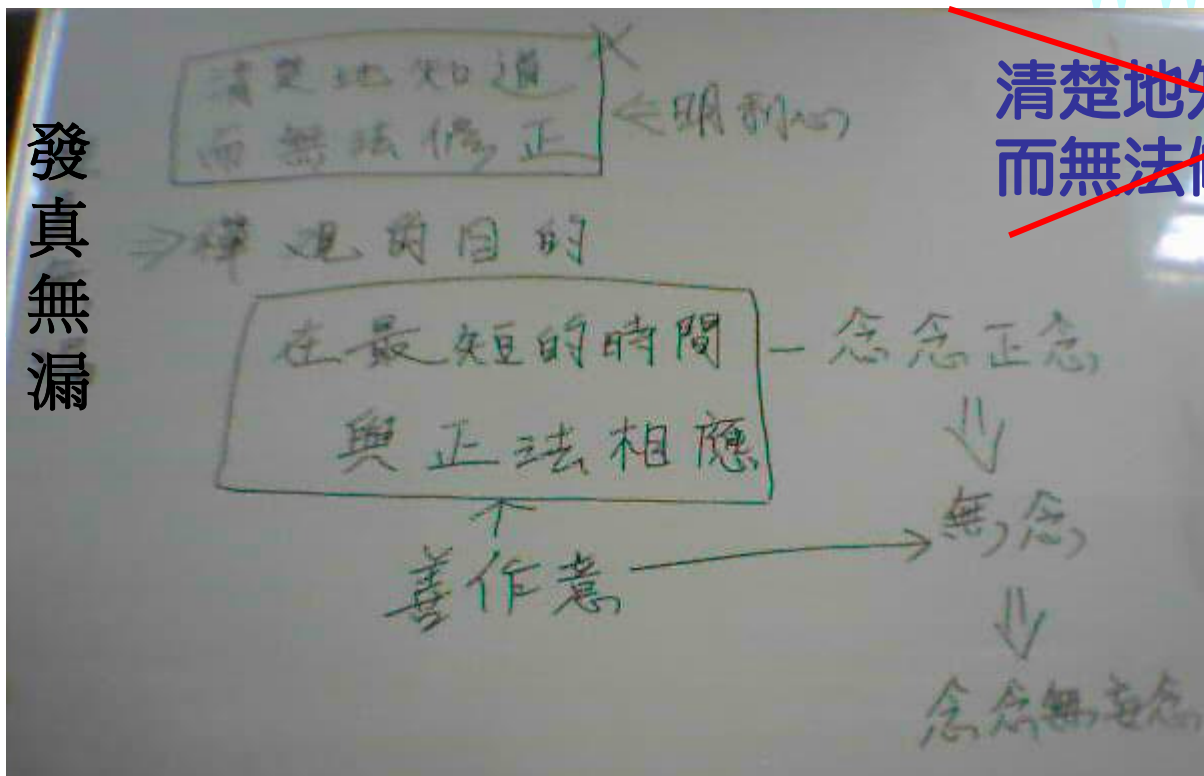 發真無漏
清楚地知道
而無法修正
←明利心
⇒禪觀的目的
在最短的時間
與正法相應
－念念正念
⇓
無念
⇓
念念無妄念
↑
善作意→
清楚地
而無法